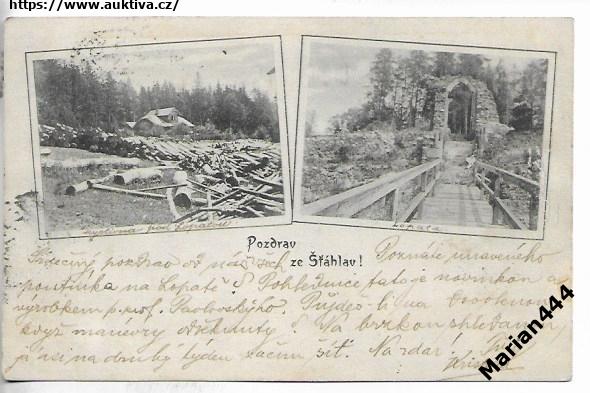 https://www.auktiva.cz/
pod Lopatou
Lopata
Pozdrav
ze Šťáhlav!
Srdečný pozdrav od nás všech. Poznáte unaveného
poutníka na Lopatě? Pohlednice tato je novinkou a
výrobkem p. prof. Pavlovského. Půjdeš-li na
když manevry odřeknuty? Na brzkou shledanou,
já asi na druhý týden začnu šít. Na zdar!
Marian444